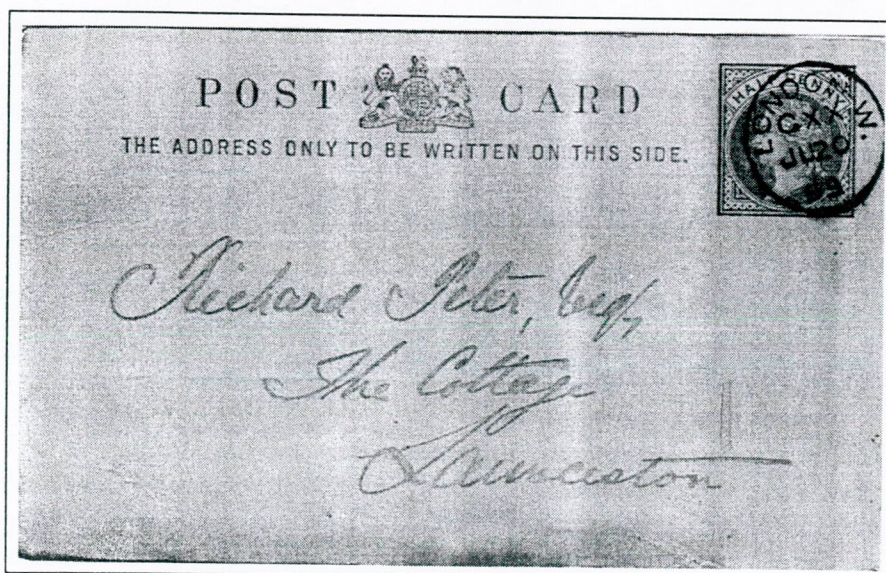 POST CARD
THE ADDRESS ONLY TO BE WRITTEN ON THIS SIDE.
HALFPENNY
LONDON W.
CX
JU20
Richard Peter, Esq,
The Cottage
Launceston